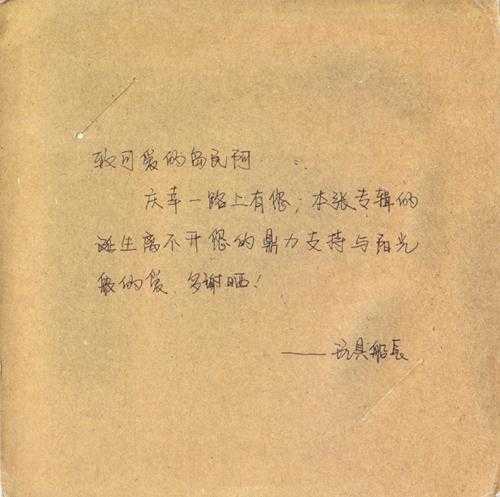 致可爱的岛民阿
庆幸一路上有您；本张专辑的
诞生离不开您的鼎力支持与阳光
般的爱 多谢晒！
——玩具船长